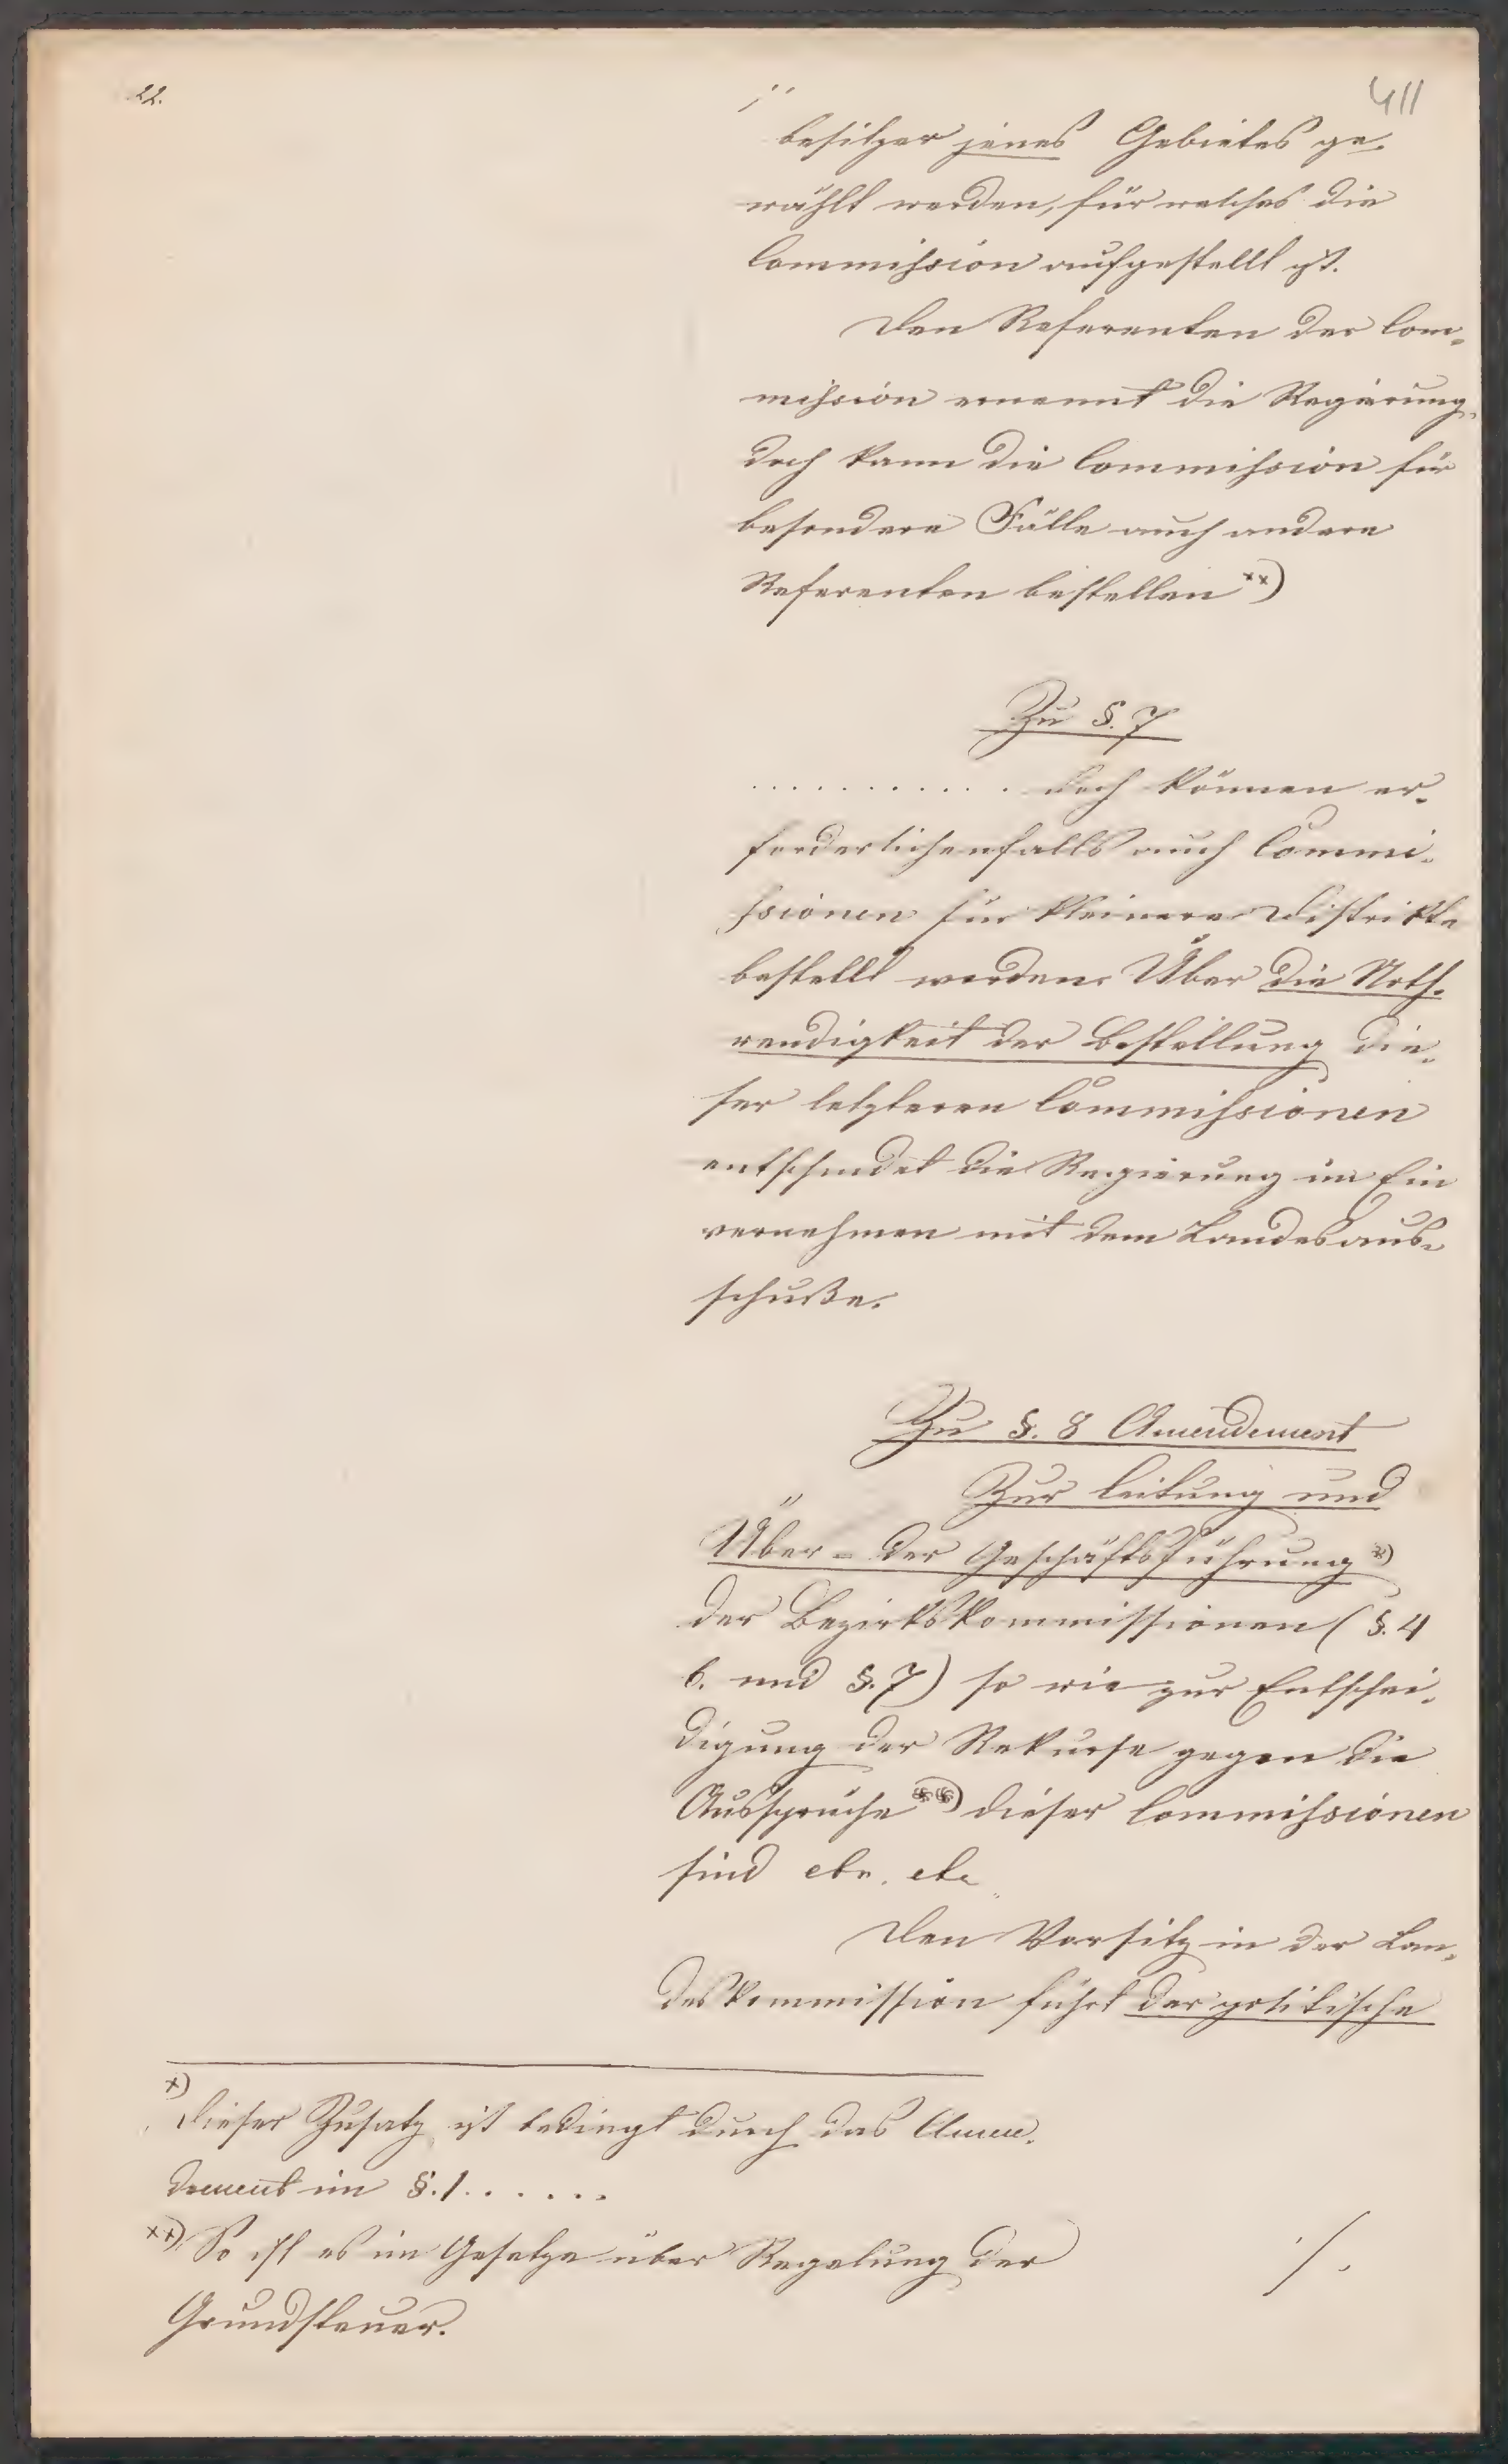 22.
411
./.
besitzer jenes Gebietes ge-
wählt werden, für welches die
Commission aufgestellt ist.
Den Referenten der Com-
mission ernennt die Regierung,
doch kann die Commission für
besondere Fälle auch andere
Referenten bestellen xx)
Zu §. 7
. . . . . . . . . . . doch können er-
forderlichenfalls auch Commi-
ssionen für kleinere Distrikte
bestellt werden. Über die Noth-
wendigkeit der Bestellung die-
ser letzteren Commissionen
entscheidet die Regierung im Ein
vernehmen mit dem Landesaus-
schuße.
Zu §. 8 Amendement
Zur Leitung und
Über- der Geschäftsführung *)
der Bezirkskommissionen (§. 4
6. und §. 7) so wie zur Entschei-
digung der Rekurse gegen die
Aussprüche **) dieser Commissionen
sind etc. etc
Den Vorsitz in der Lan-
deskommission führt der politische
x)
Dieser Zusatz ist bedingt durch das Amen-
dement im §. 1 . . . . . .
xx) So ist es im Gesetze über Regelung der
Grundsteuer.
./.